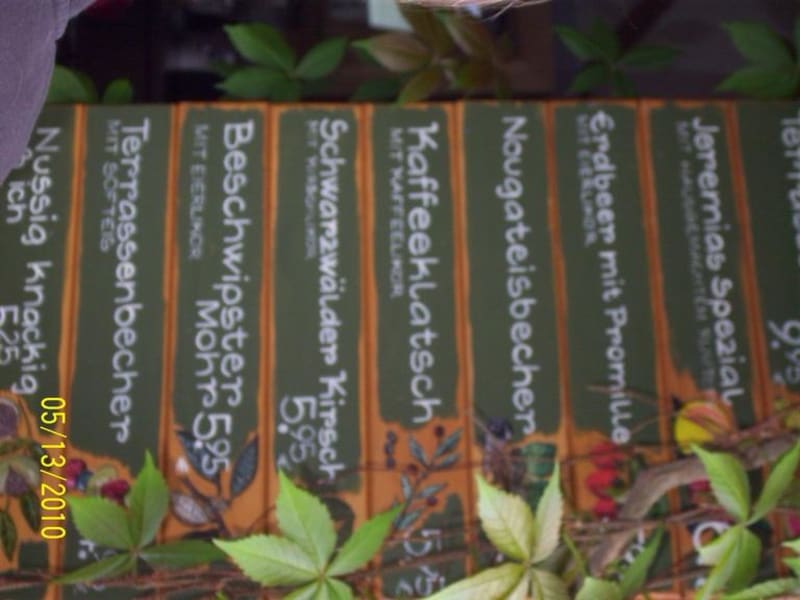 9.95
Jeremias Spezial
Erdbeer mit Promille
MIT EIERLIKÖR
Nougateisbecher
Kaffeeklatsch
MIT KAFFEELIKÖR
Schwarzwälder Kirsch
5.95
Beschwipster
Mohr 5.95
MIT EIERLIKÖR
Terrassenbecher
MIT SOFTEIS
Nussig knackig
ich
5.25
05/13/2010